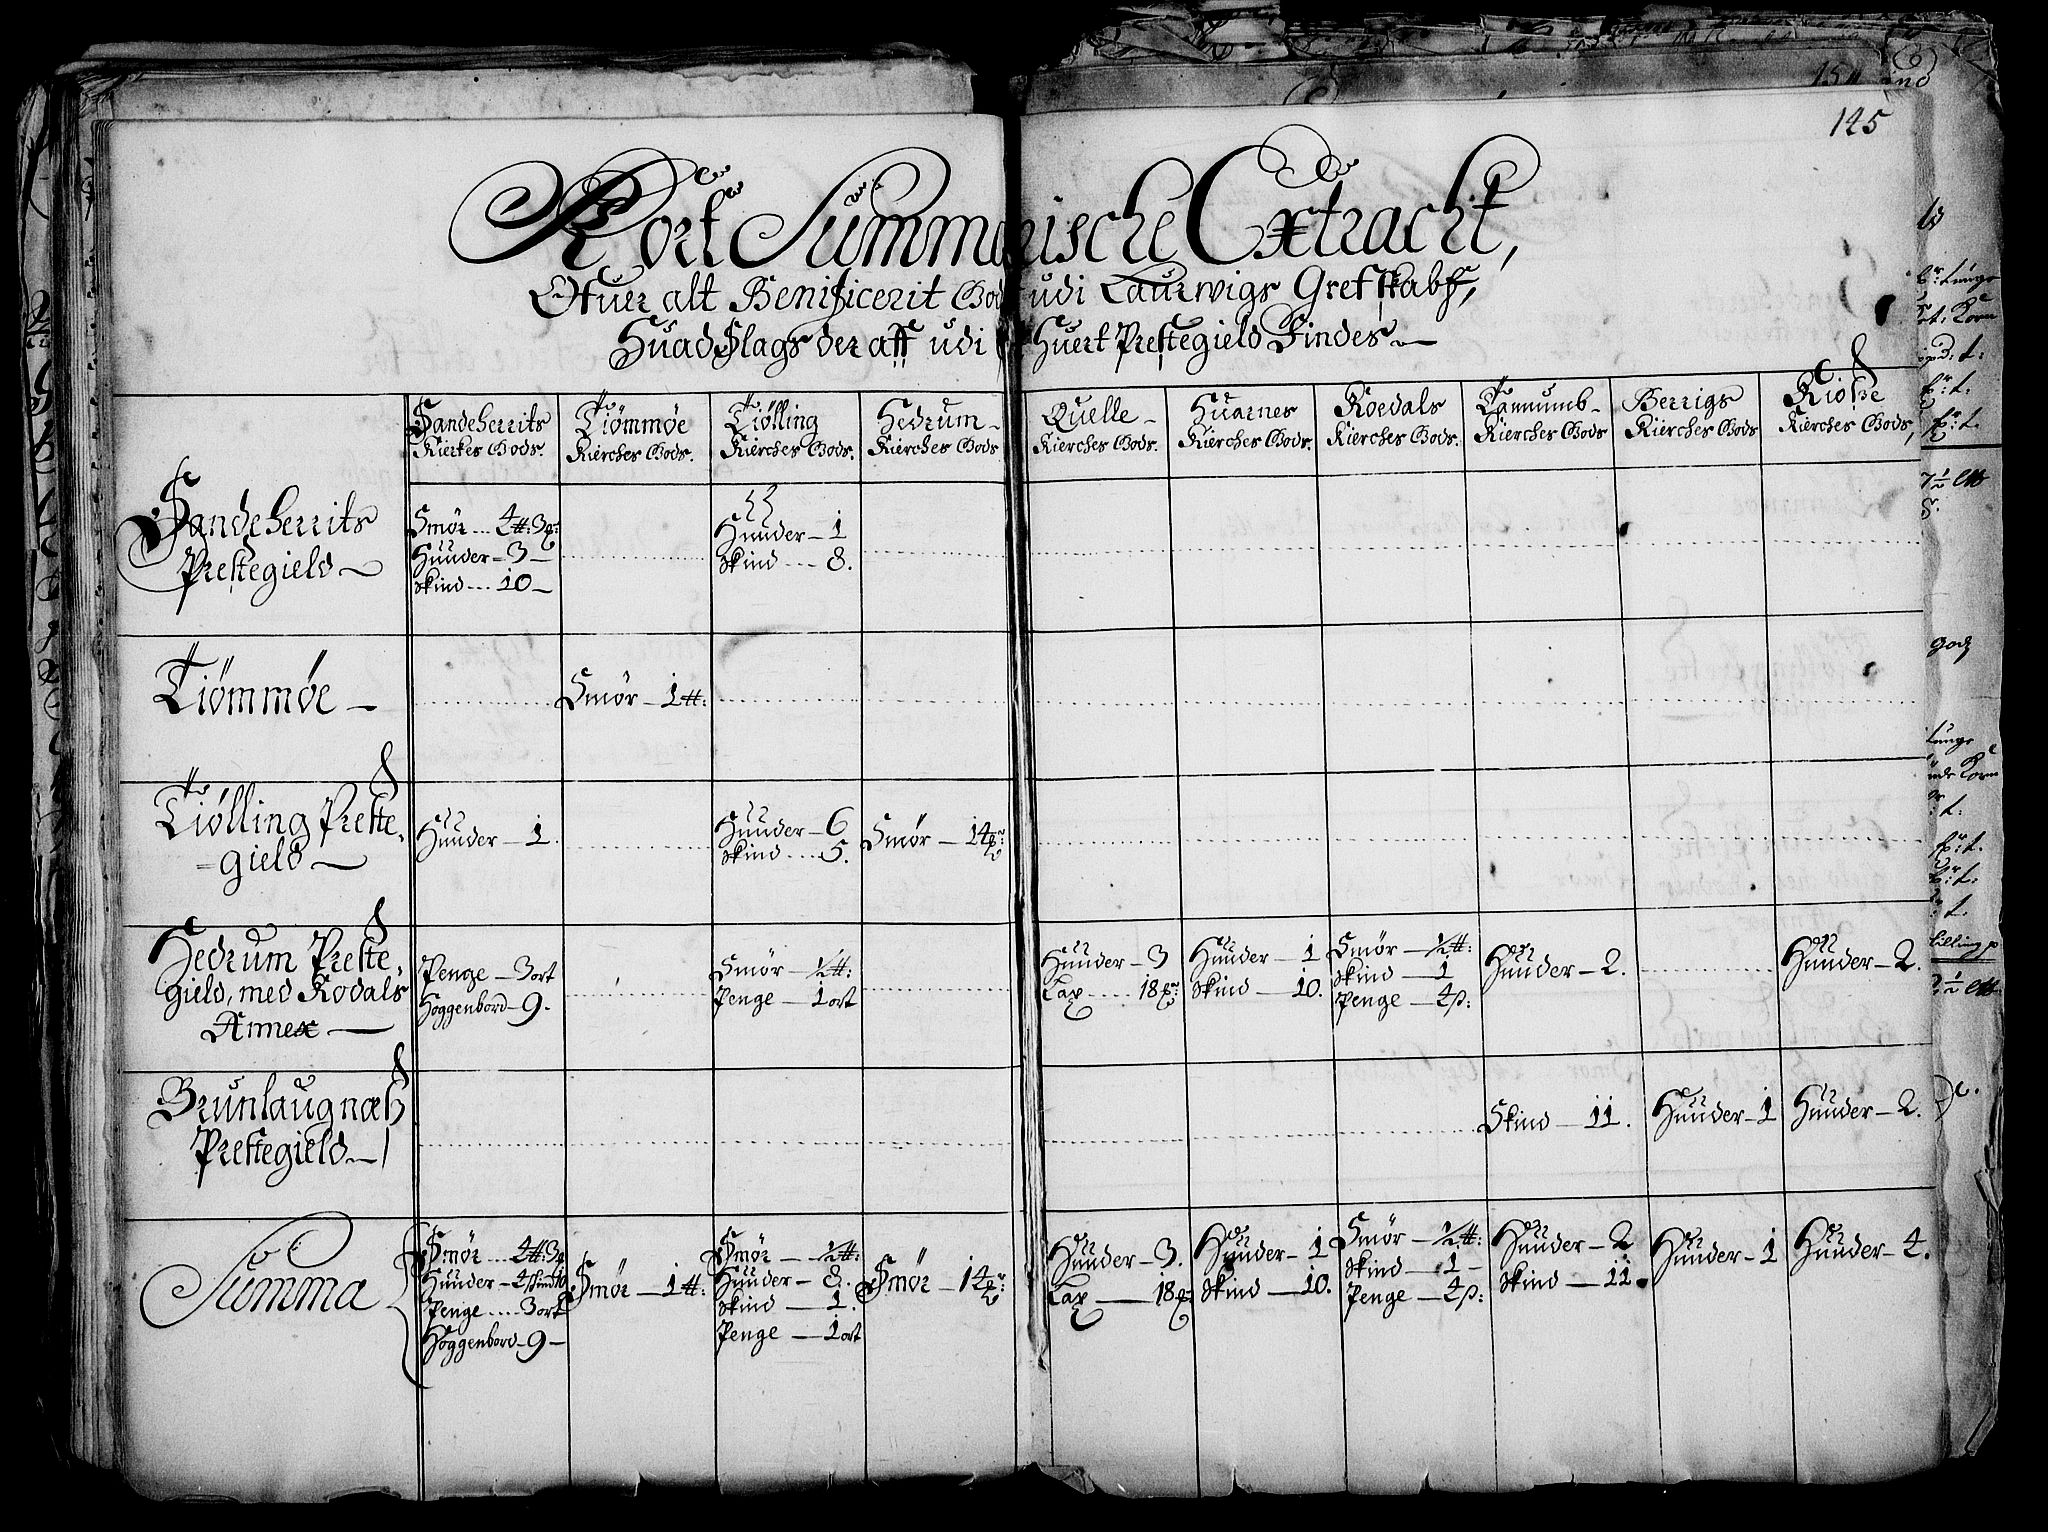 145
Kort Summarische Extracht,
Ofuer alt Benificerit Gods udi Laurwigs Grefskabs,
Huad Slags der aff udi Huert Prestegield Findes
Sandeherrits Kirkes Gods. Tiømmøe Kierches Gods. Tiølling Kierches Gods. Hedrum Kierches Gods Quelle Kierches Gods. Huarnes Kierches Gods. Roedals Kierches Gods. Tannumb Kierches Gods Berrigs Kierches Gods Kiose Kierches Gods,
Sandeherrits
Prestegield
Smør 4 ℔: 3 p:
Hunder 3
Skind 10
Hunder 1
Skind 8.
Tiømmøe
Smør 1 ℔:
Tiølling Preste-
gield
Hunder 1.
Hunder 6
Skind 5.
Smør 14 p:
Hedrum Preste-
gield, med Rodals
Annex
Penge 3 ort
Hoggenbord 9.
Smør ½ ℔:
Penge 1 ort
Hunder 3
Lax 18 p:
Hunder 1
Skind 10.
Smør ½ ℔:
Skind 1
Penge 4 β:
Hunder 2.
Hunder 2.
Brunlaugnæs
Prestegield
Skind 11.
Hunder 1
Hunder 2.
Summa
Smør 4 ℔: 3 p
Hunder 4 skind 10
Penge 3 ort
Hoggenbord 9
Smør 1 ℔:
Smør ½ ℔:
Hunder 8.
Skind 1.
Penge 1 ort
Smør 14 p:
Hunder 3.
Lax 18 p:
Hunder 1
Skind 10.
Smør ½ ℔:
Skind 1
Penge 4 β:
Hunder 2
Skind 11.
Hunder 1
Hunder 4.